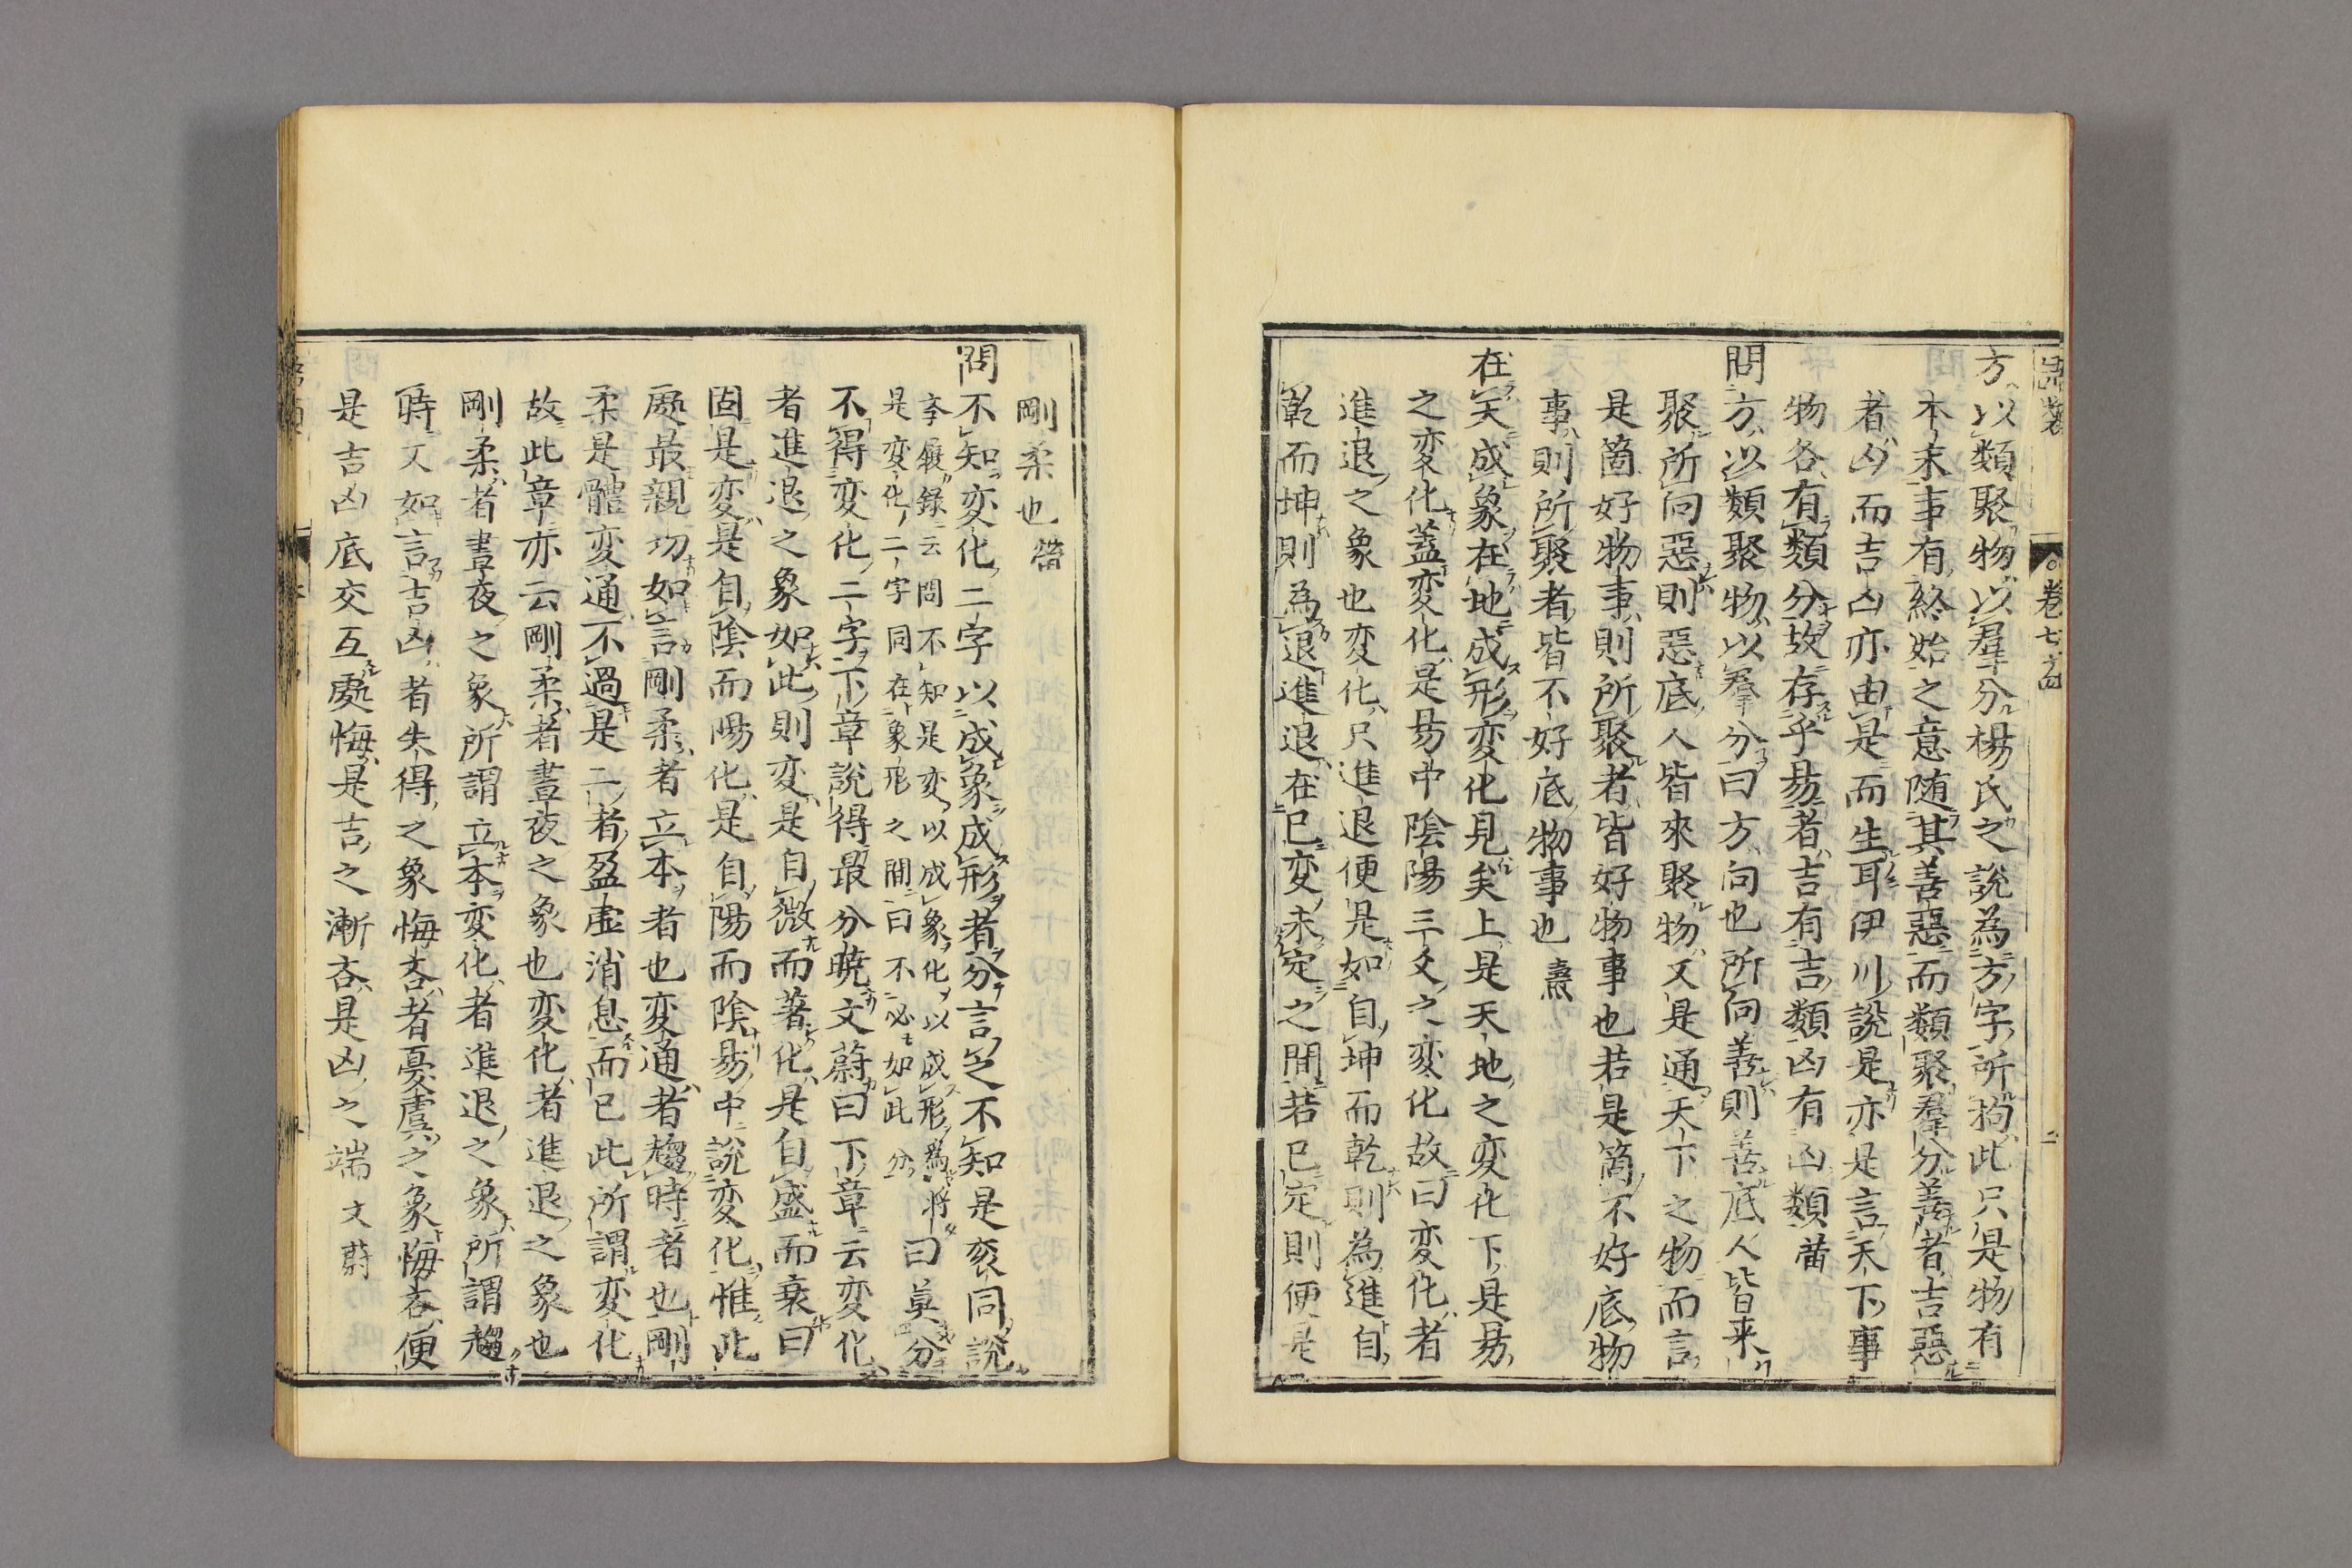 語類 卷七十四 二
方以類聚物以羣分楊氏之說為方字所拘此只是物有
本末事有終始之意随其善惡而類聚羣分善者吉惡
者凶而吉凶亦由是而生耳伊川說是亦是言天下事
物各有類分故存乎昜者吉有吉類凶有凶類𤲞
問方以類聚物以羣分曰方向也所向善則善底人皆来
聚所向惡則惡底人皆來聚物又是通天下之物而言
是箇好物事則所聚者皆好物事也若是箇不好底物
事則所聚者皆不好底物事也燾
在天成象在地成形変化見矣上是天地之変化下是昜
之変化蓋変化是昜中陰陽二爻之変化故曰変化者
進退之象也変化只進退便是如自坤而乾則為進自
乾而坤則為退進退在已変未定之間若已定則便是
剛柔也𤲞
問不知変化二字以成象成形者分言之不知是衮同說
李鍰録云問不知是変以成象化以成形為將
是変化二字同在象形之間曰不必如此分
曰莫分
不得変化二字下章說得最分曉文蔚曰下章云変化
者進退之象如此則変是自微而著化是自盛而衰曰
固是変是自陰而陽化是自陽而陰昜中說変化惟此
處最親切如言剛柔者立本者也変通者趨時者也剛
柔是體変通不過是二者盈虛消息而已此所謂変化
故此章亦云剛柔者晝夜之象也変化者進退之象也
剛柔者晝夜之象所謂立本変化者進退之象所謂趨
時又如言吉凶者失得之象悔吝者憂虞之象悔吝便
是吉凶底交互處悔是吉之漸吝是凶之端文蔚